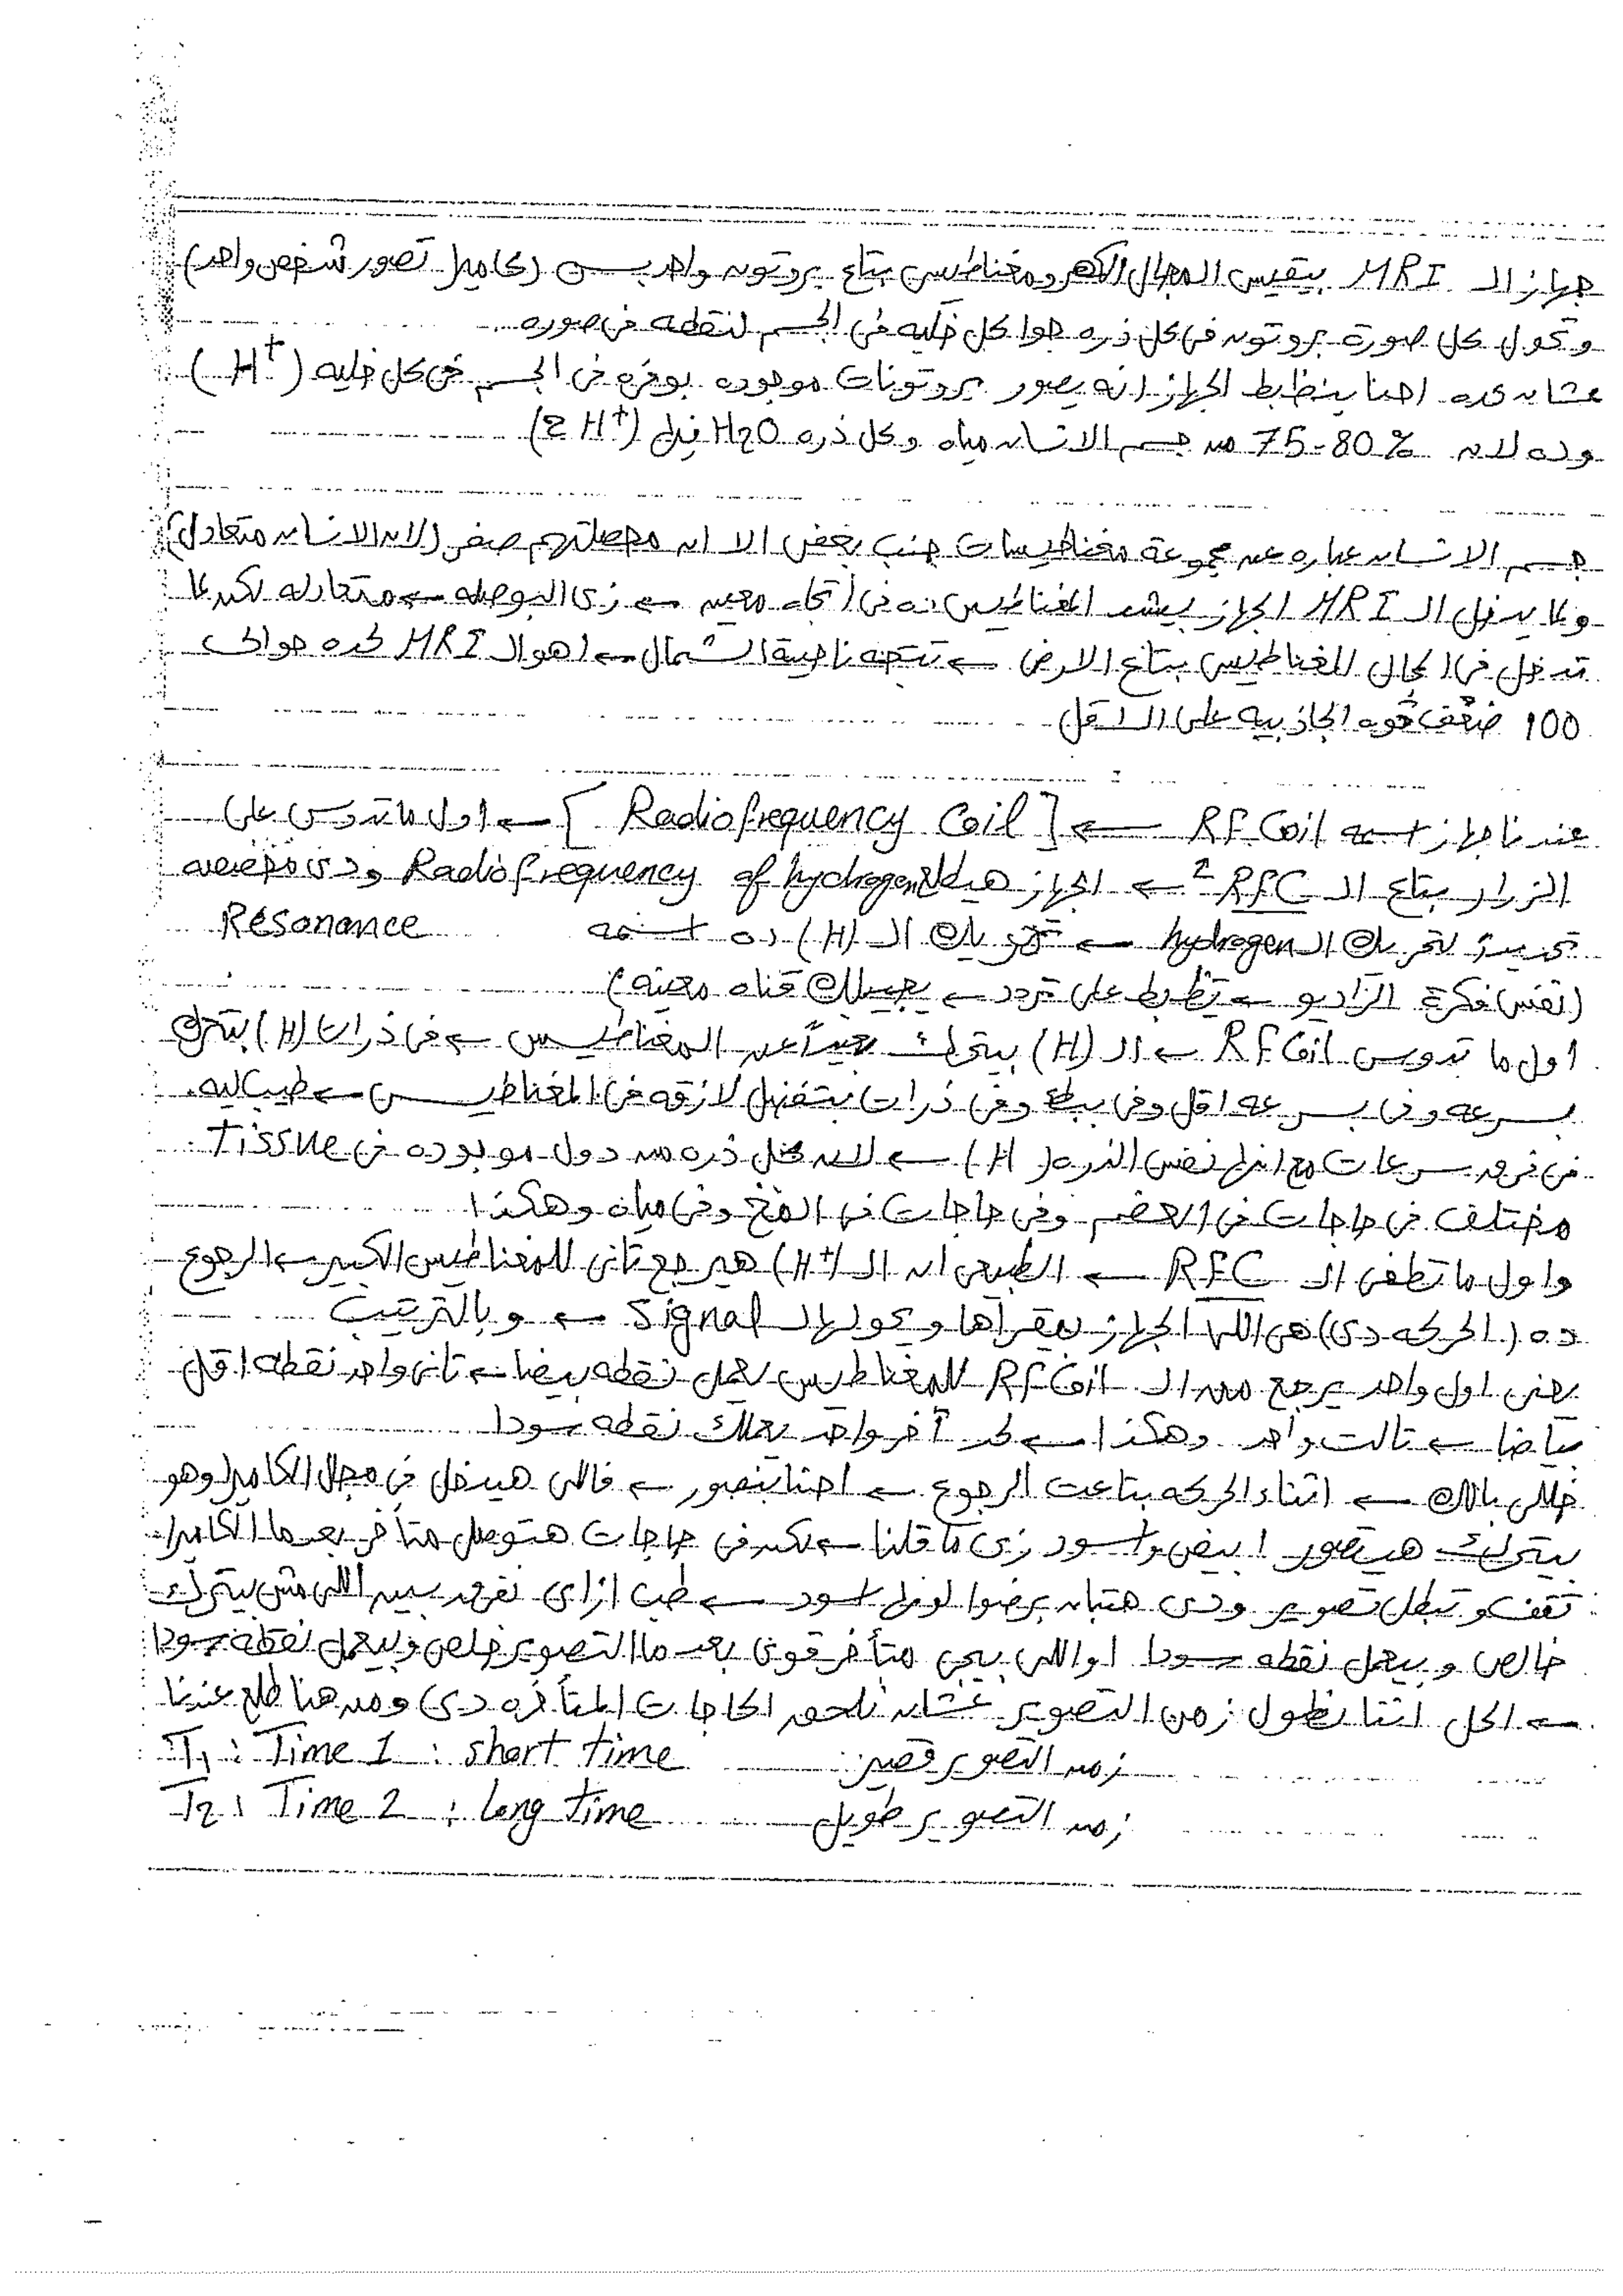 جهاز الـ MRI بيقيس المجال الكهرومغناطيسي بتاع بروتون واحد بس (كاميرا تصور شخص واحد)
وتحول كل صورة بروتون في كل ذره جوا كل خليه في الجسم لنقطه في صوره
عشان كده احنا بنظبط الجهاز انه يصور بروتونات موجوده بوفره في الجسم في كل خليه (H⁺)
وده لان 75-80% من جسم الانسان مياه وكل ذره H2O فيها (2H⁺)
جسم الانسان عباره عن مجموعة مغناطيسات جنب بعض الا ان محصلتهم صفر (لان الانسان متعادل)
ولما يدخل الـ MRI الجهاز بيشد المغناطيس ده في اتجاه معين ← زي البوصله ← متعادله لكن لما
تدخل في المجال المغناطيسي بتاع الارض ← تتجه ناحية الشمال ← اهو الـ MRI كده حوالى
100 ضعف قوه الجاذبيه على الاقل
عندنا جهاز اسمه RF Coil ← [Radiofrequency Coil] ← اول ما تدوس على
الزرار بتاع الـ RFC ← الجهاز هيطلع Radiofrequency of hydrogen ودي مخصصه
تحديداً لتحريك الـ hydrogen ← تحريك الـ (H) ده اسمه Resonance
(نفس فكرة الراديو ← تظبط على تردد ← يجيبلك قناه معينه)
اول ما تدوس RF Coil ← الـ (H) بيتحرك بعيداً عن المغناطيس ← في ذرات (H) بتتحرك
بسرعه وفي بسرعه اقل وفي ببطء وفي ذرات بتفضل لازقه في المغناطيس ← طيب ليه
في فرق سرعات مع انها نفس الذره (H) ← لان كل ذره من دول موجوده في Tissue
مختلف في حاجات في العضم وفي حاجات في المخ وفي مياه وهكذا
واول ما تطفى الـ RFC ← الطبيعي ان الـ (H⁺) هيرجع تاني للمغناطيس الكبير ← الرجوع
ده (الحركه دي) هي اللي الجهاز بيقرأها ويحولها لـ Signal ← وبالترتيب
يعنى اول واحد يرجع من الـ RF Coil للمغناطيس يعمل نقطه بيضا ← تاني واحد نقطه اقل
بياضا ← تالت واحد وهكذا ← لحد آخر واحد يعملك نقطه سودا
خللي بالك ← اثناء الحركه بتاعت الرجوع ← احنا بنصور ← فاللي هيدخل في مجال الكاميرا وهو
بيتحرك هيتصور ابيض واسود زي ما قلنا ← لكن في حاجات هتوصل متأخر بعد ما الكاميرا
تقف وتبطل تصوير ودي هتبان برضوا لونها اسود ← طب ازاي نفرق بين اللي مش بيتحرك
خالص وبيعمل نقطه سودا او اللي بيجي متأخر قوي بعد ما التصوير خلص وبيعمل نقطه سودا
← الحل اننا نطول زمن التصوير عشان نلحق الحاجات المتأخره دي ومن هنا طلع عندنا
T1 : Time 1 : short time زمن التصوير قصير
T2 : Time 2 : Long time زمن التصوير طويل